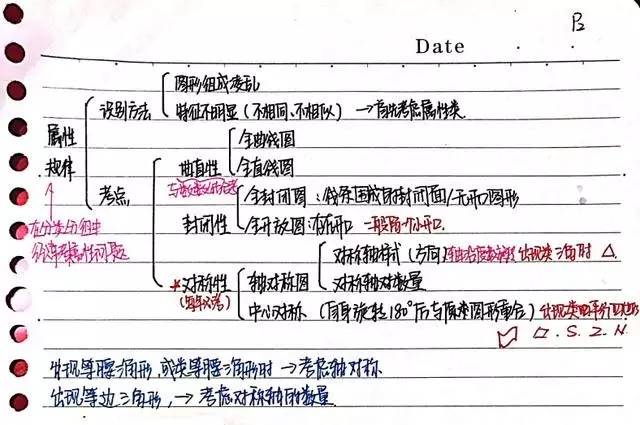 Date
图形组成凌乱
识别方法
特征不明显(不相同、不相似) →首先考虑属性类
属性
规律
全曲线图
曲直性
全直线图
考点
全封闭图:线条围成的封闭面/无开口图形
封闭性
全开放图:有开口 一般留一个小开口.
在分类分组中
问题
对称轴样式(方向) 出现类三角时 △
*对称性 轴对称图
对称轴对数量
(每年必考)
中心对称 (自身旋转180°后与原来图形重合)
S.Z.N
出现等腰三角形,或类等腰三角形时→考虑轴对称
出现等边三角形,→考虑对称轴的数量